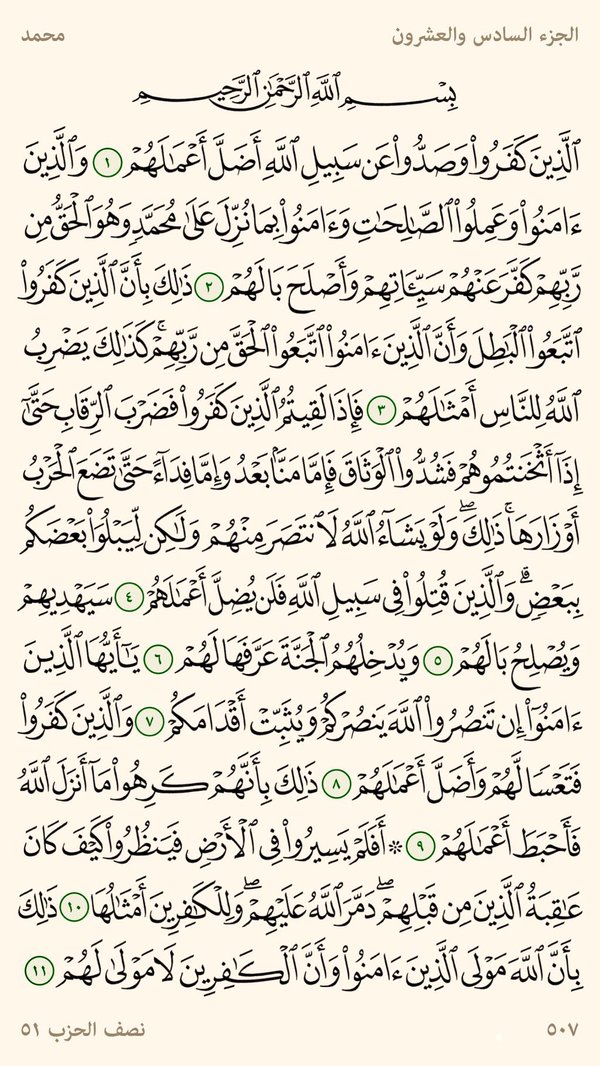 الجزء السادس والعشرون
محمد
بِسْمِ ٱللَّهِ ٱلرَّحْمَٰنِ ٱلرَّحِيمِ
ٱلَّذِينَ كَفَرُوا۟ وَصَدُّوا۟ عَن سَبِيلِ ٱللَّهِ أَضَلَّ أَعْمَٰلَهُمْ ١ وَٱلَّذِينَ
ءَامَنُوا۟ وَعَمِلُوا۟ ٱلصَّٰلِحَٰتِ وَءَامَنُوا۟ بِمَا نُزِّلَ عَلَىٰ مُحَمَّدٍ وَهُوَ ٱلْحَقُّ مِن
رَّبِّهِمْ كَفَّرَ عَنْهُمْ سَيِّـَٔاتِهِمْ وَأَصْلَحَ بَالَهُمْ ٢ ذَٰلِكَ بِأَنَّ ٱلَّذِينَ كَفَرُوا۟
ٱتَّبَعُوا۟ ٱلْبَٰطِلَ وَأَنَّ ٱلَّذِينَ ءَامَنُوا۟ ٱتَّبَعُوا۟ ٱلْحَقَّ مِن رَّبِّهِمْ ۚ كَذَٰلِكَ يَضْرِبُ
ٱللَّهُ لِلنَّاسِ أَمْثَٰلَهُمْ ٣ فَإِذَا لَقِيتُمُ ٱلَّذِينَ كَفَرُوا۟ فَضَرْبَ ٱلرِّقَابِ حَتَّىٰٓ
إِذَآ أَثْخَنتُمُوهُمْ فَشُدُّوا۟ ٱلْوَثَاقَ فَإِمَّا مَنًّۢا بَعْدُ وَإِمَّا فِدَآءً حَتَّىٰ تَضَعَ ٱلْحَرْبُ
أَوْزَارَهَا ۚ ذَٰلِكَ ۖ وَلَوْ يَشَآءُ ٱللَّهُ لَٱنتَصَرَ مِنْهُمْ وَلَٰكِن لِّيَبْلُوَا۟ بَعْضَكُم
بِبَعْضٍ ۗ وَٱلَّذِينَ قُتِلُوا۟ فِى سَبِيلِ ٱللَّهِ فَلَن يُضِلَّ أَعْمَٰلَهُمْ ٤ سَيَهْدِيهِمْ
وَيُصْلِحُ بَالَهُمْ ٥ وَيُدْخِلُهُمُ ٱلْجَنَّةَ عَرَّفَهَا لَهُمْ ٦ يَٰٓأَيُّهَا ٱلَّذِينَ
ءَامَنُوٓا۟ إِن تَنصُرُوا۟ ٱللَّهَ يَنصُرْكُمْ وَيُثَبِّتْ أَقْدَامَكُمْ ٧ وَٱلَّذِينَ كَفَرُوا۟
فَتَعْسًا لَّهُمْ وَأَضَلَّ أَعْمَٰلَهُمْ ٨ ذَٰلِكَ بِأَنَّهُمْ كَرِهُوا۟ مَآ أَنزَلَ ٱللَّهُ
فَأَحْبَطَ أَعْمَٰلَهُمْ ٩ ۞ أَفَلَمْ يَسِيرُوا۟ فِى ٱلْأَرْضِ فَيَنظُرُوا۟ كَيْفَ كَانَ
عَٰقِبَةُ ٱلَّذِينَ مِن قَبْلِهِمْ ۖ دَمَّرَ ٱللَّهُ عَلَيْهِمْ ۖ وَلِلْكَٰفِرِينَ أَمْثَٰلُهَا ١٠ ذَٰلِكَ
بِأَنَّ ٱللَّهَ مَوْلَى ٱلَّذِينَ ءَامَنُوا۟ وَأَنَّ ٱلْكَٰفِرِينَ لَا مَوْلَىٰ لَهُمْ ١١
٥٠٧
نصف الحزب ٥١